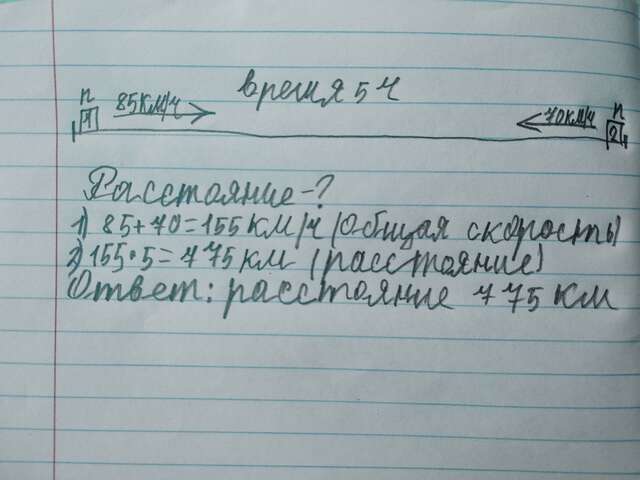 время 5 ч
п 85км/ч 70км/ч п
1 2
Расстояние-?
1) 85+70=155 км/ч (общая скорость)
2) 155·5=775 км (расстояние)
Ответ: расстояние 775 км